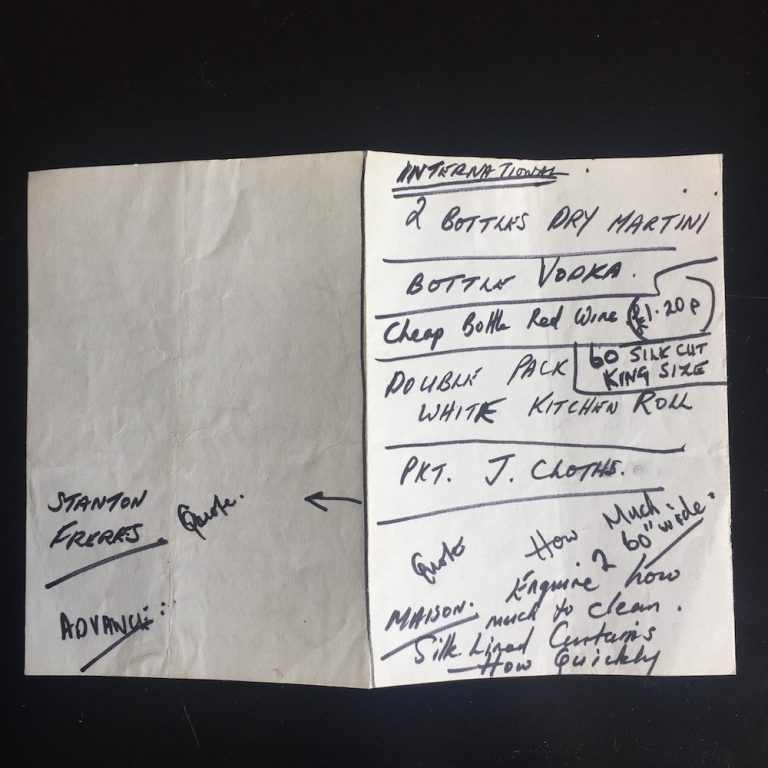 INTERNATIONAL.
2 BOTTLES DRY MARTINI
BOTTLE VODKA.
Cheap Bottle Red Wine £1.20p
60 SILK CUT
KING SIZE
DOUBLE PACK
WHITE KITCHEN ROLL
PKT. J. CLOTHS.
Quote How Much
2 60" wide.
MAISON. Enquire how
much to clean.
Silk Lined Curtains
How Quickly
STANTON
FRERES. Quote.
ADVANCE: